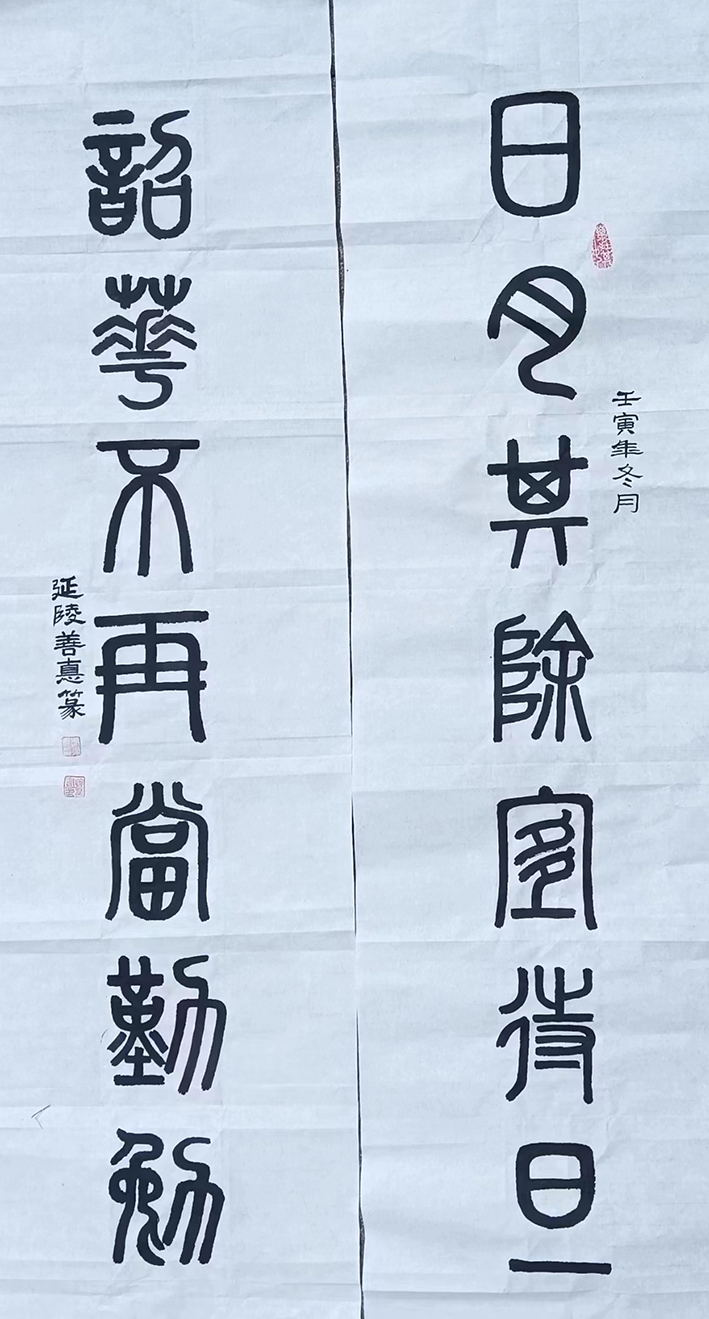 日月其除宜待旦
壬寅年冬月
韶華不再當勤勉
延陵善惪篆